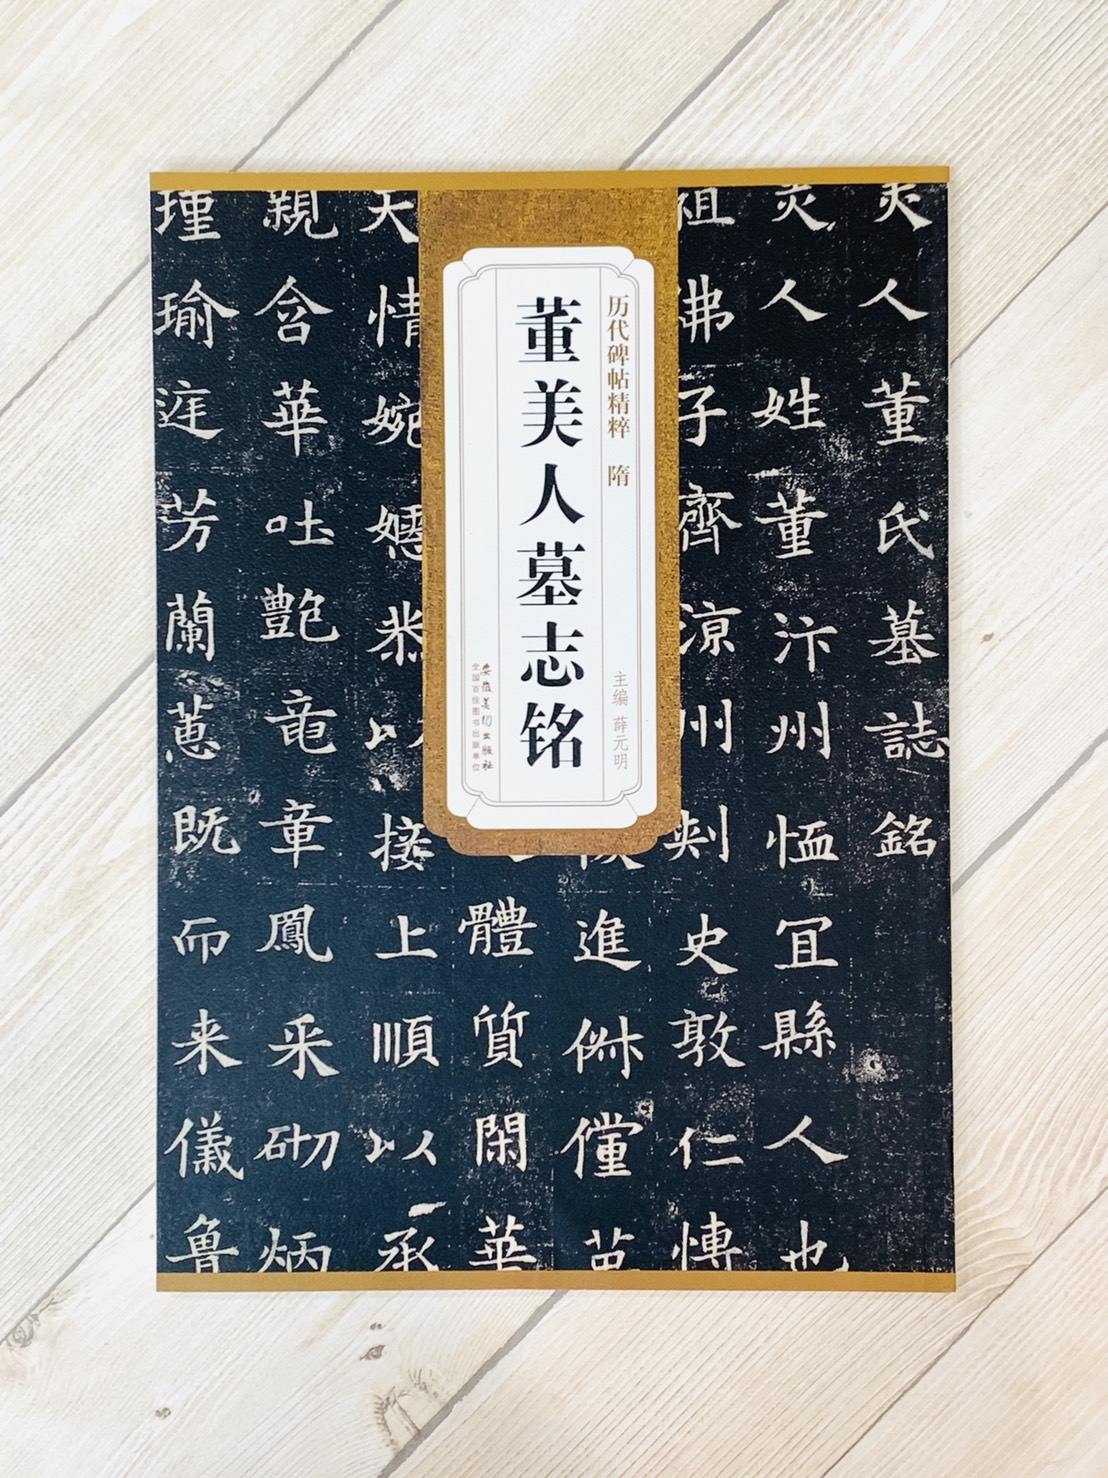 历代碑帖精粹 隋
主编 薛元明
董美人墓志铭
安徽美术出版社
全国百佳图书出版单位
美人董氏墓誌銘
美人姓董汴州恤冝縣人也
祖佛子齊涼州刾史敦仁博
進俶儻英
體質閑華
天情婉嫕恭以接上順以承
親含華吐艷竜章鳳采砌炳
瑾瑜庭芳蘭蕙既而来儀魯